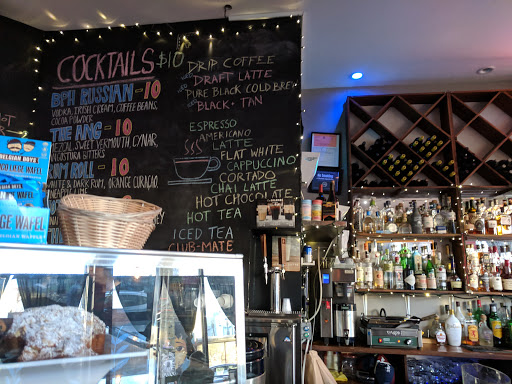 COCKTAILS $10
BPH RUSSIAN - 10
VODKA, IRISH CREAM, COFFEE BEANS,
COCOA POWDER
THE ANG - 10
MEZCAL, SWEET VERMOUTH, CYNAR,
ANGOSTURA BITTERS
ROLL - 10
WHITE & DARK RUM, ORANGE CURAÇAO,
DRIP COFFEE
DRAFT LATTE
PURE BLACK COLD BREW
BLACK & TAN
ESPRESSO
AMERICANO
LATTE
FLAT WHITE
CAPPUCCINO
CORTADO
CHAI LATTE
HOT CHOCOLATE
HOT TEA
ICED TEA
CLUB-MATE
BELGIAN BOYS
WAFEL